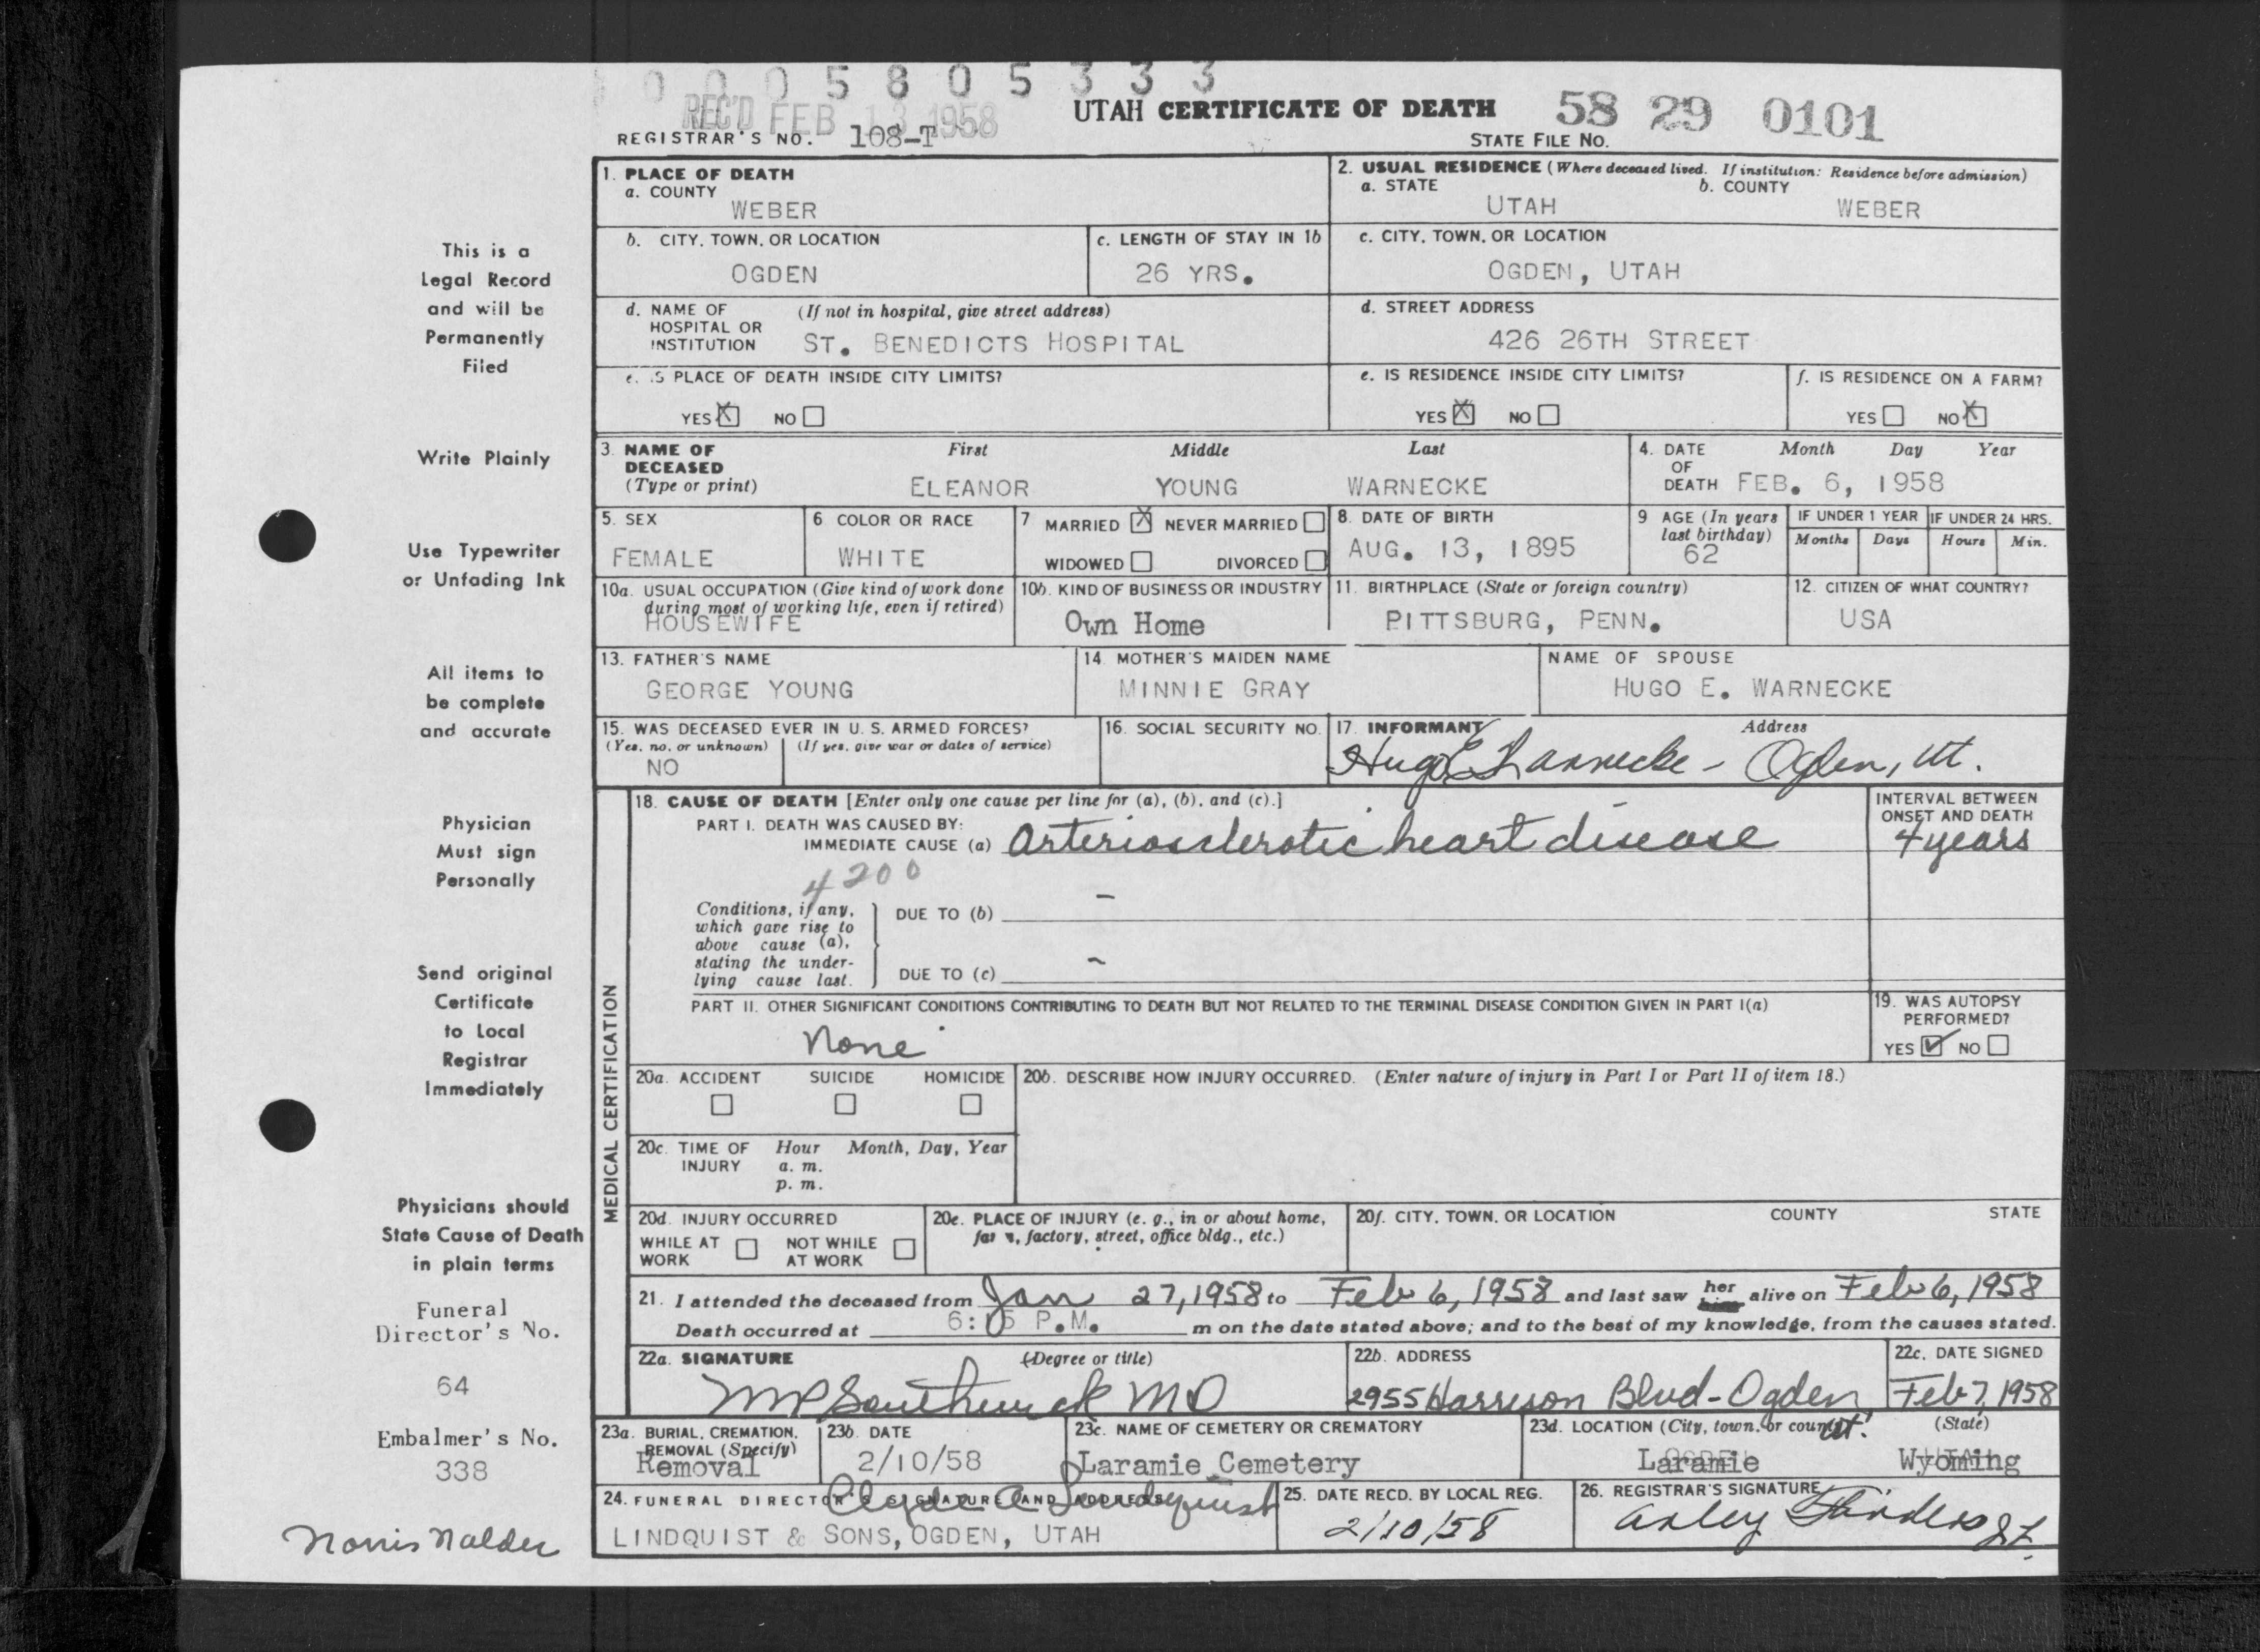 0 0 0 5 8 0 5 3 3 3
REC'D FEB 13 1958
UTAH CERTIFICATE OF DEATH 58 29 0101
REGISTRAR'S NO. 108-T STATE FILE NO.
1. PLACE OF DEATH
a. COUNTY
WEBER
2. USUAL RESIDENCE (Where deceased lived. If institution: Residence before admission)
a. STATE b. COUNTY
UTAH WEBER
b. CITY, TOWN, OR LOCATION
OGDEN
c. LENGTH OF STAY IN 1b
26 YRS.
c. CITY, TOWN, OR LOCATION
OGDEN, UTAH
d. NAME OF (If not in hospital, give street address)
HOSPITAL OR
INSTITUTION ST. BENEDICTS HOSPITAL
d. STREET ADDRESS
426 26TH STREET
e. IS PLACE OF DEATH INSIDE CITY LIMITS?
YES X NO
e. IS RESIDENCE INSIDE CITY LIMITS?
YES X NO
f. IS RESIDENCE ON A FARM?
YES NO X
3. NAME OF DECEASED (Type or print)
First Middle Last
ELEANOR YOUNG WARNECKE
4. DATE OF DEATH
Month Day Year
FEB. 6, 1958
5. SEX
FEMALE
6 COLOR OR RACE
WHITE
7 MARRIED X NEVER MARRIED
WIDOWED DIVORCED
8. DATE OF BIRTH
AUG. 13, 1895
9 AGE (In years
last birthday)
62
IF UNDER 1 YEAR IF UNDER 24 HRS.
Months Days Hours Min.
10a. USUAL OCCUPATION (Give kind of work done
during most of working life, even if retired)
HOUSEWIFE
10b. KIND OF BUSINESS OR INDUSTRY
Own Home
11. BIRTHPLACE (State or foreign country)
PITTSBURG, PENN.
12. CITIZEN OF WHAT COUNTRY?
USA
13. FATHER'S NAME
GEORGE YOUNG
14. MOTHER'S MAIDEN NAME
MINNIE GRAY
NAME OF SPOUSE
HUGO E. WARNECKE
15. WAS DECEASED EVER IN U. S. ARMED FORCES?
(Yes, no, or unknown) (If yes, give war or dates of service)
NO
16. SOCIAL SECURITY NO.
17. INFORMANT Address
Hugo E Warnecke - Ogden, Ut.
MEDICAL CERTIFICATION
18. CAUSE OF DEATH [Enter only one cause per line for (a), (b), and (c).]
PART I. DEATH WAS CAUSED BY:
IMMEDIATE CAUSE (a) Arteriosclerotic heart disease
INTERVAL BETWEEN
ONSET AND DEATH
4 years
4200
Conditions, if any,
which gave rise to
above cause (a),
stating the under-
lying cause last.
DUE TO (b) -
DUE TO (c) -
PART II. OTHER SIGNIFICANT CONDITIONS CONTRIBUTING TO DEATH BUT NOT RELATED TO THE TERMINAL DISEASE CONDITION GIVEN IN PART I(a)
None
19. WAS AUTOPSY
PERFORMED?
YES ✓ NO
20a. ACCIDENT SUICIDE HOMICIDE
20b. DESCRIBE HOW INJURY OCCURRED. (Enter nature of injury in Part I or Part II of item 18.)
20c. TIME OF INJURY
Hour Month, Day, Year
a. m.
p. m.
20d. INJURY OCCURRED
WHILE AT WORK NOT WHILE AT WORK
20e. PLACE OF INJURY (e. g., in or about home,
farm, factory, street, office bldg., etc.)
20f. CITY, TOWN, OR LOCATION COUNTY STATE
21. I attended the deceased from Jan 27, 1958 to Feb 6, 1958 and last saw her him alive on Feb 6, 1958
Death occurred at 6:15 P.M. m on the date stated above; and to the best of my knowledge, from the causes stated.
22a. SIGNATURE (Degree or title)
MP Southwick MD
22b. ADDRESS
2955 Harrison Blvd - Ogden Ut.
22c. DATE SIGNED
Feb 7, 1958
23a. BURIAL, CREMATION,
REMOVAL (Specify)
Removal
23b. DATE
2/10/58
23c. NAME OF CEMETERY OR CREMATORY
Laramie Cemetery
23d. LOCATION (City, town, or county) (State)
Laramie Wyoming
24. FUNERAL DIRECTOR'S SIGNATURE AND ADDRESS
Clyde A Lindquist
LINDQUIST & SONS, OGDEN, UTAH
25. DATE RECD. BY LOCAL REG.
2/10/58
26. REGISTRAR'S SIGNATURE
This is a
Legal Record
and will be
Permanently
Filed
Write Plainly
Use Typewriter
or Unfading Ink
All items to
be complete
and accurate
Physician
Must sign
Personally
Send original
Certificate
to Local
Registrar
Immediately
Physicians should
State Cause of Death
in plain terms
Funeral
Director's No.
64
Embalmer's No.
338
Norris Nalder